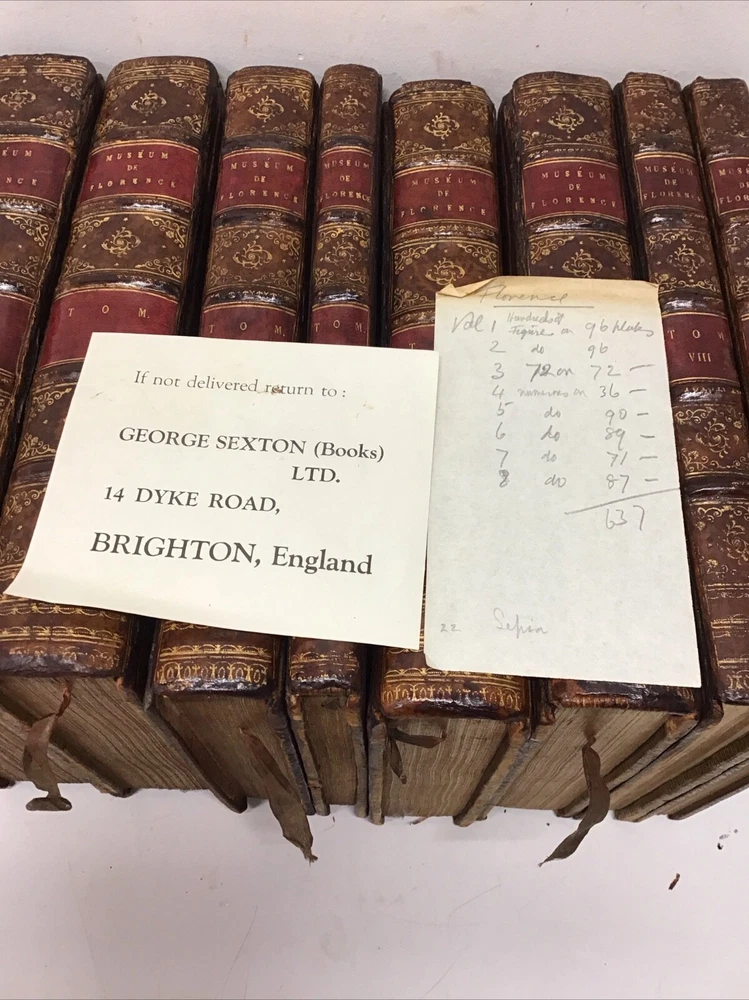 UM
ENCE
MUSÉUM
DE
FLORENCE
TOM.
MUSÉUM
DE
FLORENCE
TOM.
MUSÉUM
DE
FLORENCE
TOM.
MUSÉUM
DE
FLORENCE
MUSÉUM
DE
FLORENCE
MUSÉUM
DE
FLORENCE
TOM
VIII
If not delivered return to :
GEORGE SEXTON (Books)
LTD.
14 DYKE ROAD,
BRIGHTON, England
Florence
Vol 1 Figures on 96 plates
2 do 96
3 72 on 72 —
4 numeros on 36 —
5 do 90 —
6 do 89 —
7 do 71 —
8 do 87 —
637
22 Sepia